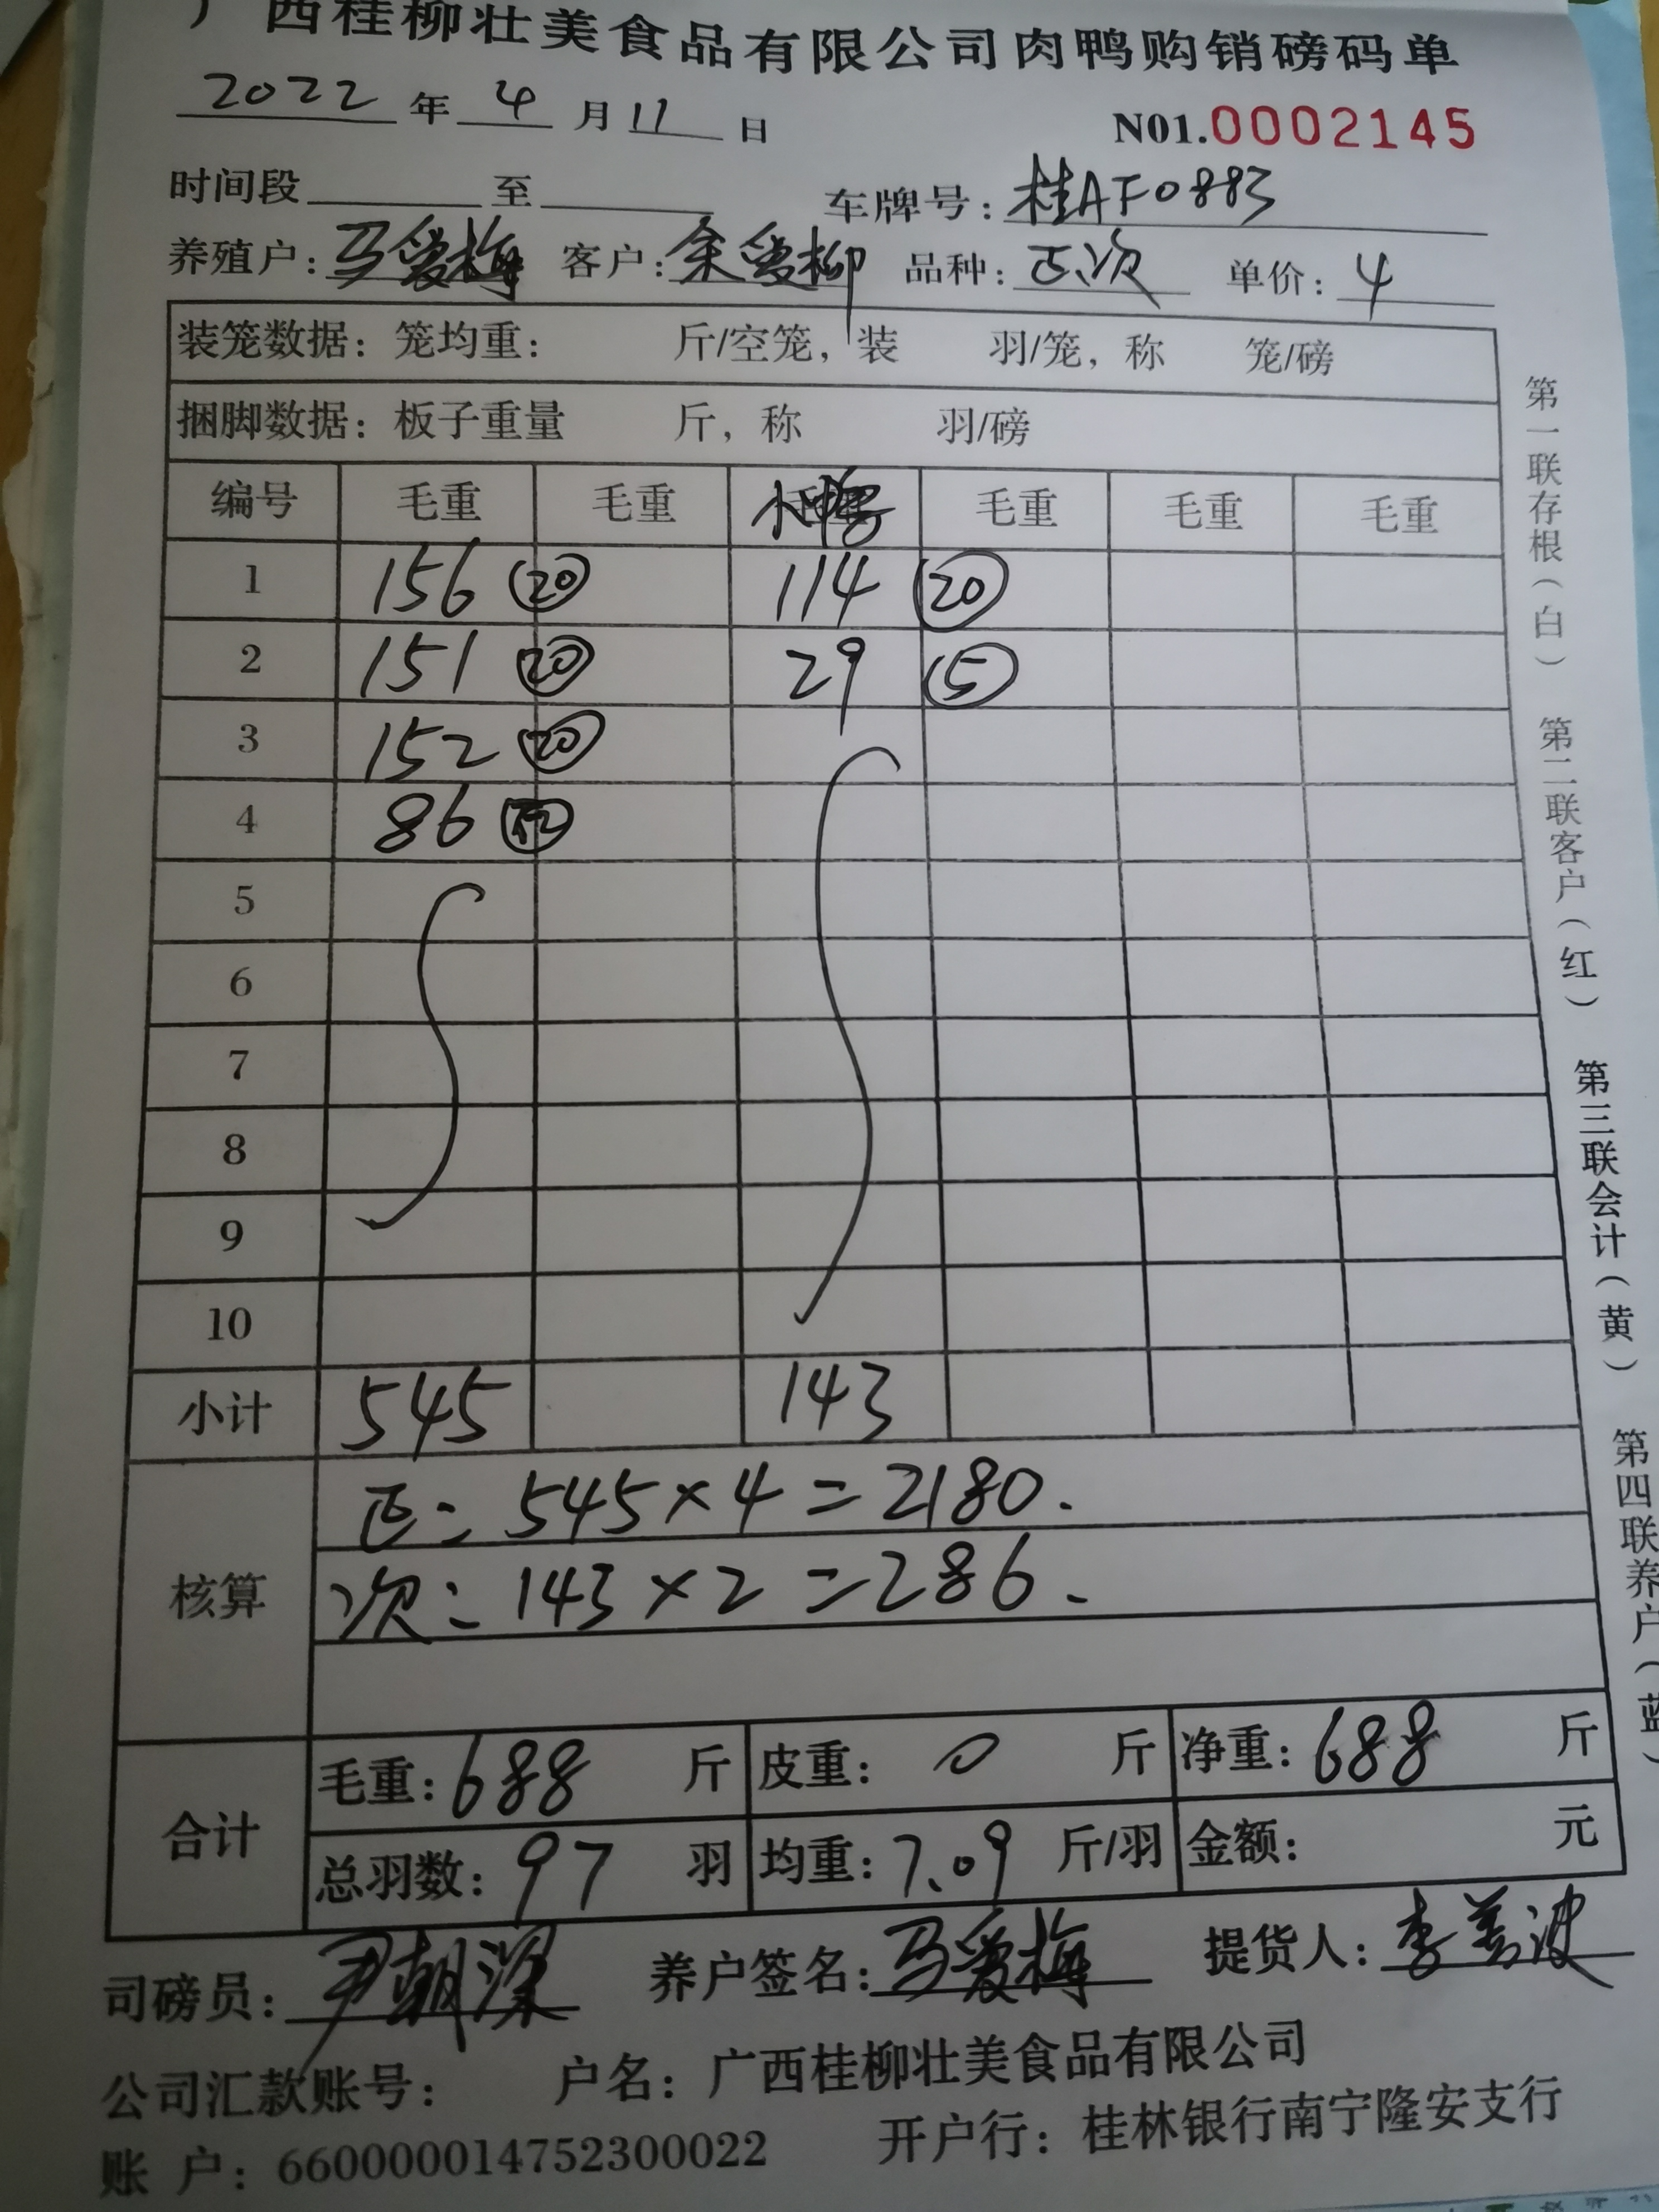 广西桂柳壮美食品有限公司肉鸭购销磅码单
2022 年 4 月 11 日
N01.0002145
时间段 至 车牌号:桂AF0883
养殖户:马爱梅 客户:余爱柳 品种:正次 单价:4
装笼数据:笼均重: 斤/空笼,装 羽/笼,称 笼/磅
捆脚数据:板子重量 斤,称 羽/磅
编号 毛重 毛重 小鸭 毛重 毛重 毛重
1 156 20 114 20
2 151 20 29 5
3 152 20
4 86 12
5
6
7
8
9
10
小计 545 143
核算
正:545×4=2180.
次:143×2=286.
合计
毛重:688 斤 皮重:0 斤 净重:688 斤
总羽数:97 羽 均重:7.09 斤/羽 金额: 元
司磅员: 养户签名:马爱梅 提货人:
公司汇款账号: 户名:广西桂柳壮美食品有限公司
账 户:660000014752300022 开户行:桂林银行南宁隆安支行
第一联存根(白)
第二联客户(红)
第三联会计(黄)
第四联养户(蓝)